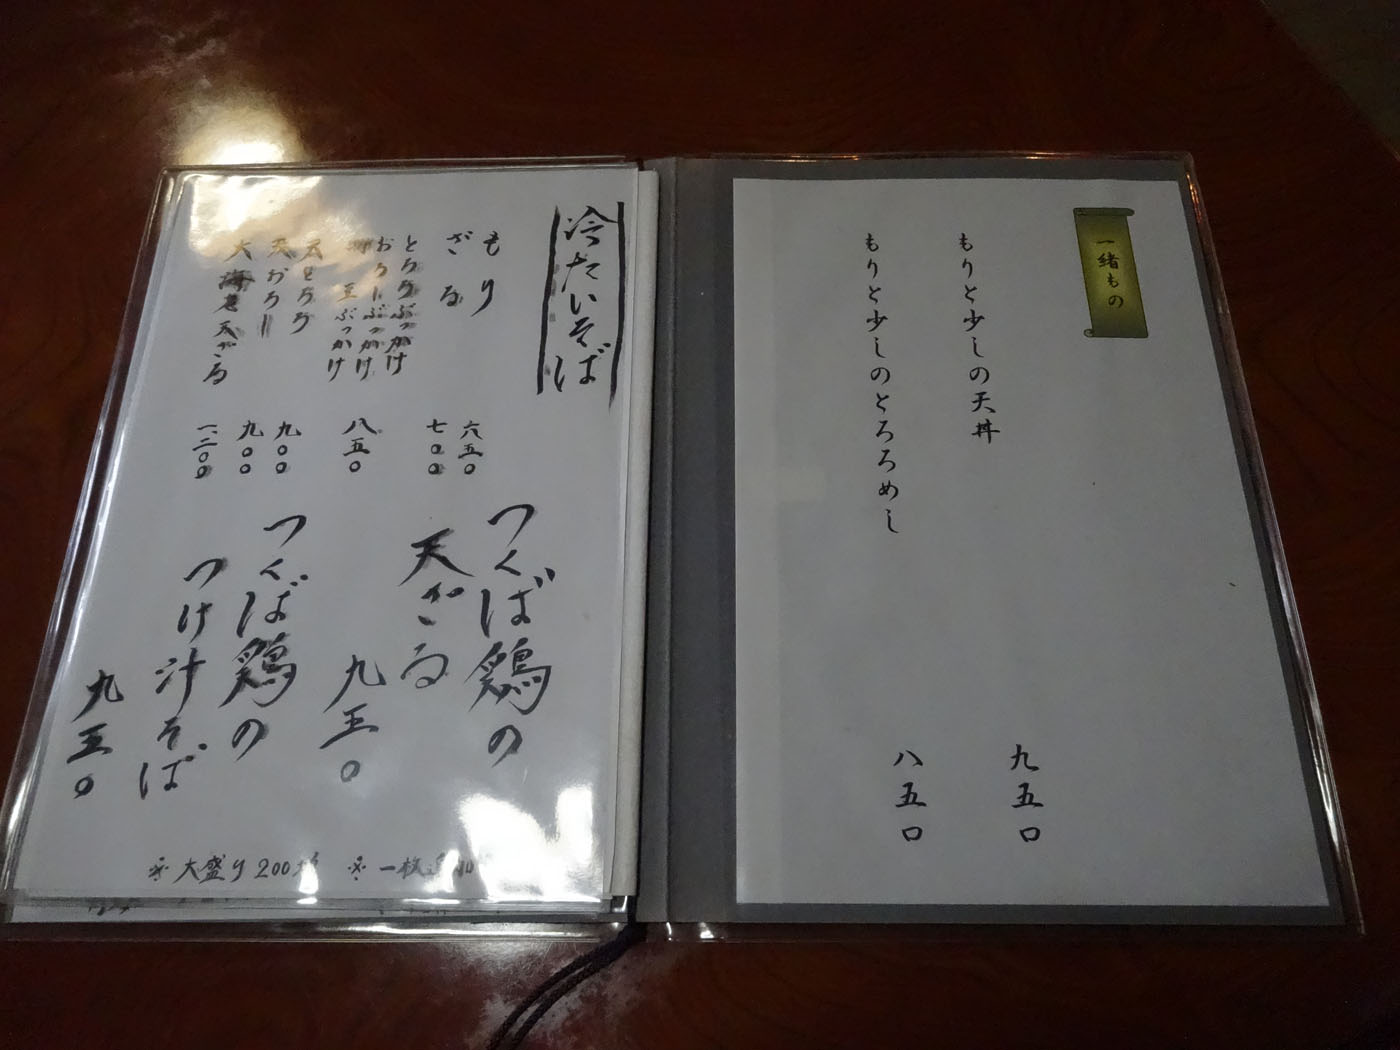 一緒もの
もりと少しの天丼
九五〇
もりと少しのとろろめし
八五〇
冷たいそば
もり
六五〇
ざる
七〇〇
とろろぶっかけ
おろしぶっかけ
八五〇
天とろろ
九〇〇
天おろし
九〇〇
大海老天ざる
一、二〇〇
つくば鶏の
天ざる
九五〇
つくば鶏の
つけ汁そば
九五〇
※大盛り200増
※一枚追